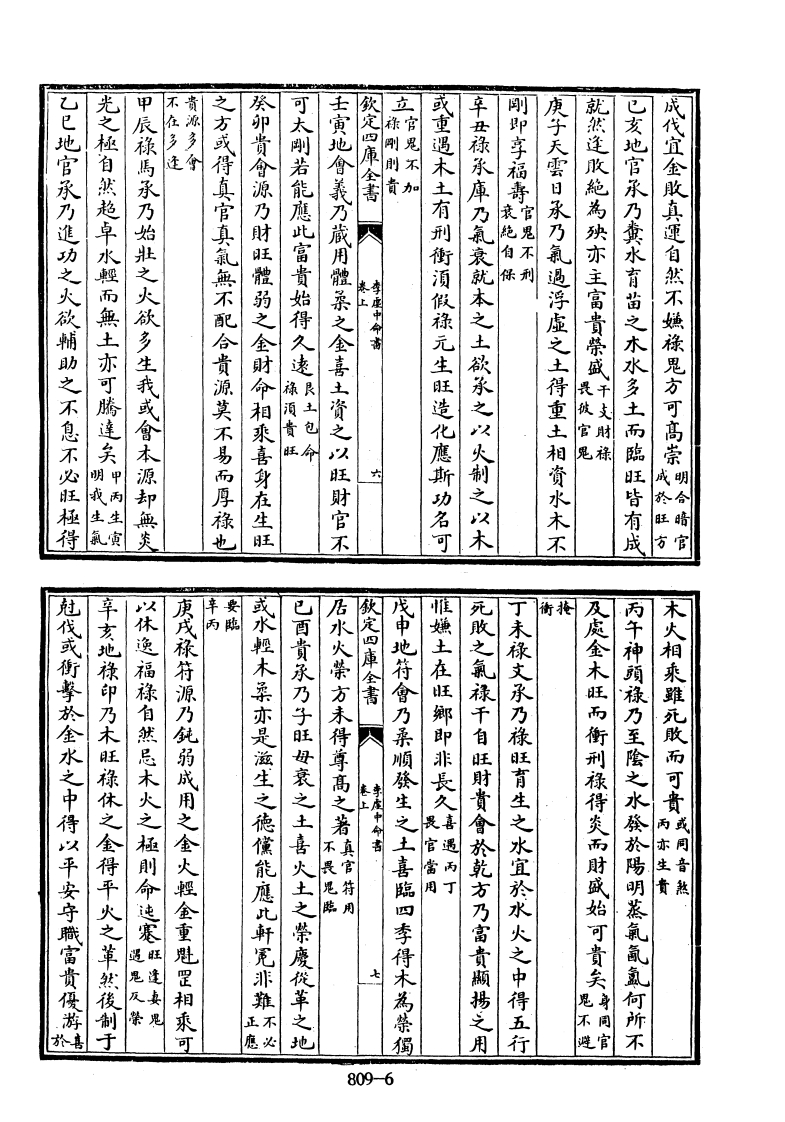 成伐宜金敗真運自然不嫌祿鬼方可髙崇明合暗官成於旺方
已亥地官承乃糞水育苗之木水多土而臨旺皆有成
就然逢敗絶為殃亦主富貴榮盛干支財祿畏彼官鬼
庚子天雲日承乃氣過浮虚之土得重土相資水木不
剛即享福壽官鬼不刑衰絶自保
辛丑祿承庫乃氣衰就本之土欲承之以火制之以木
或重遇木土有刑衝湏假祿元生旺造化應斯功名可
立官鬼不加祿剛則貴
欽定四庫全書
李虚中命書
卷上
六
壬寅地會義乃蔵用體柔之金喜土資之以旺財官不
可太剛若能應此富貴始得久逺艮土包命祿湏貴旺
癸卯貴會源乃財旺體弱之金財命相乘喜身在生旺
之方或得真官真氣無不配合貴源莫不易而厚祿也
貴源多會不在多逢
甲辰祿馬承乃始壯之火欲多生我或會本源却無炎
光之極自然超卓水輕而無土亦可騰達矣甲丙生寅明我生氣
乙巳地官承乃進功之火欲輔助之不息不必旺極得
木火相乘雖死敗而可貴或同音煞丙亦生貴
丙午神頭祿乃至陰之水發於陽明蒸氣氤氲何所不
及處金木旺而衝刑祿得炎而財盛始可貴矣身同官鬼不避
掩衝
丁未祿文承乃祿旺育生之水宜於水火之中得五行
死敗之氣祿干自旺財貴會於乾方乃富貴顯揚之用
惟嫌土在旺鄉即非長久喜遇丙丁畏官當用
欽定四庫全書
李虚中命書
卷上
七
戊申地符會乃柔順發生之土喜臨四季得木為榮獨
居水火榮方未得尊髙之著真官符用不畏鬼臨
已酉貴承乃子旺母衰之土喜火土之榮慶從革之地
或水輕木柔亦是滋生之德儻能應此軒冕非難不必正應
要臨辛丙
庚戌祿符源乃鈍弱成用之金火輕金重魁罡相乘可
以休逸福祿自然忌木火之極則命迍蹇旺逢妻鬼遇鬼反榮
辛亥地祿印乃木旺祿休之金得平火之革然後制于
尅伐或衝擊於金水之中得以平安守職富貴優游喜於
809-6